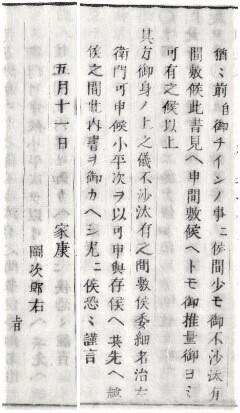 猶ミ前自御チインノ事ニ候間少モ御不沙汰有
間敷候此書見ヘ申間敷候ヘトモ御推量御ヨミ
可有之候以上
其方御身ノ上之儀不沙汰有之間敷候委細名治左
衛門可申候小平次ヲ以可申與存候ヘ共先ヘ
候之間此内書ヲ御カヘシ尤ニ候恐ミ謹言
五月十一日
家康
岡次郎右